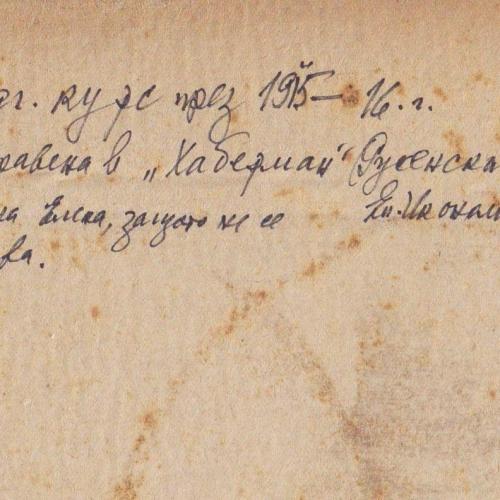 г. курс през 1915 – 16. г.
равена в „Хаберман“ Русенска
на Елена, защото не се Ек. Иконом
ва.